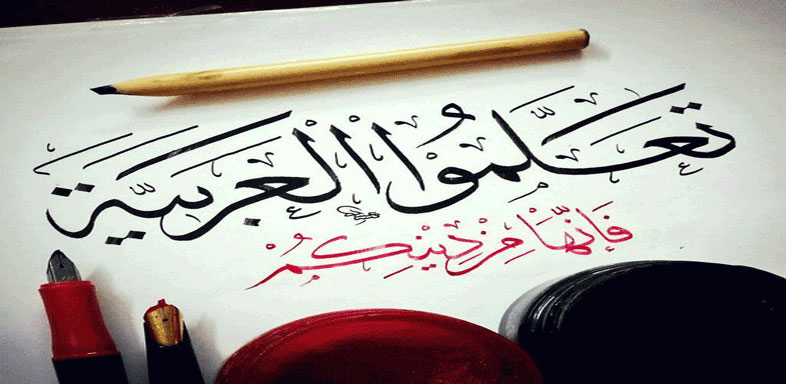 تعلَّمُوا الْعَرَبِيَّة
فَإِنَّهَا مِنْ دِيْنِكُمْ